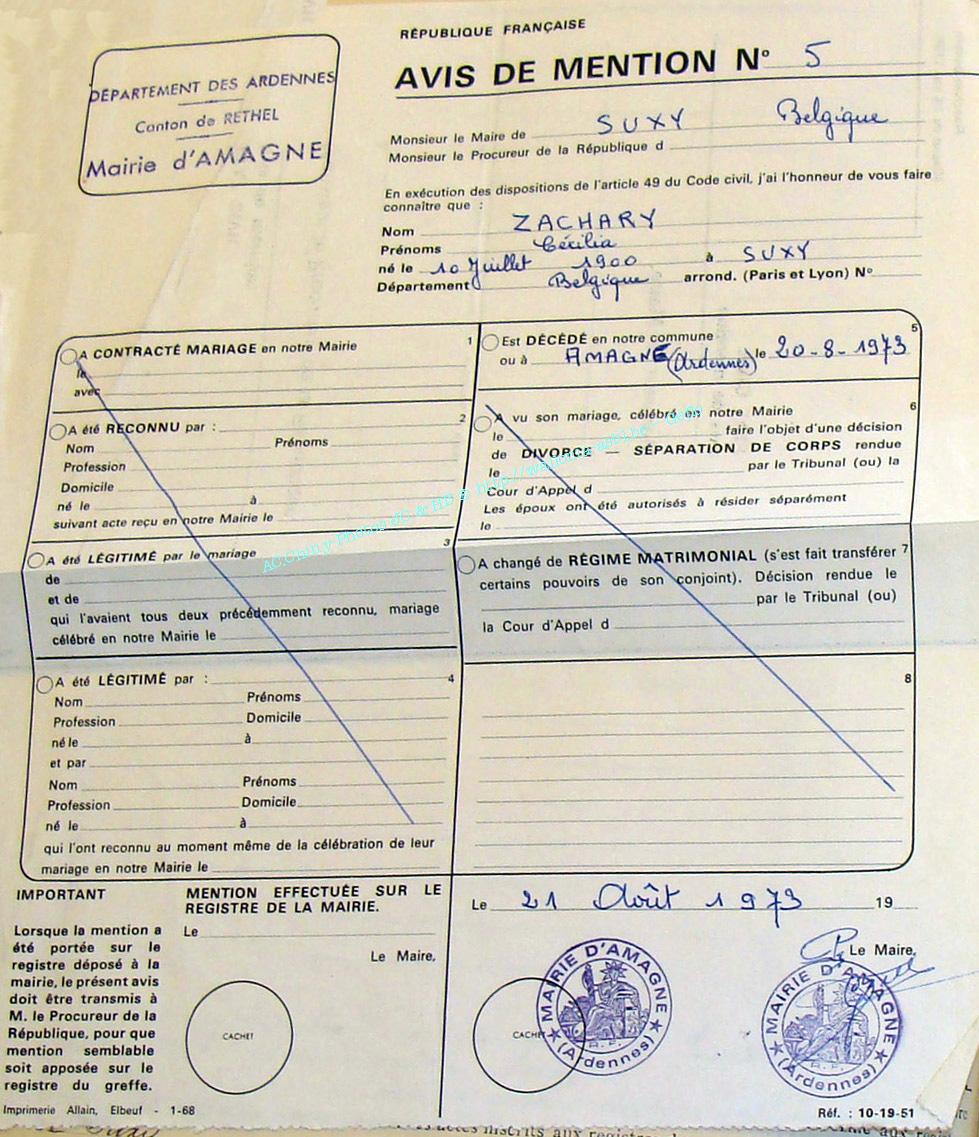 RÉPUBLIQUE FRANÇAISE
AVIS DE MENTION Nº 5
DÉPARTEMENT DES ARDENNES
Canton de RETHEL
Mairie d'AMAGNE
Monsieur le Maire de SUXY Belgique
Monsieur le Procureur de la République d
En exécution des dispositions de l'article 49 du Code civil, j'ai l'honneur de vous faire
connaître que :
Nom ZACHARY
Prénoms Cécilia
né le 10 Juillet 1900 à SUXY
Département Belgique arrond. (Paris et Lyon) Nº
A CONTRACTÉ MARIAGE en notre Mairie 1
le
avec
A été RECONNU par : 2
Nom Prénoms
Profession
Domicile
né le à
suivant acte reçu en notre Mairie le
A été LÉGITIMÉ par le mariage 3
de
et de
qui l'avaient tous deux précédemment reconnu, mariage
célébré en notre Mairie le
A été LÉGITIMÉ par : 4
Nom Prénoms
Profession Domicile
né le à
et par
Nom Prénoms
Profession Domicile
né le à
qui l'ont reconnu au moment même de la célébration de leur
mariage en notre Mairie le
Est DÉCÉDÉ en notre commune 5
ou à AMAGNE (Ardennes) le 20-8-1973
A vu son mariage, célébré en notre Mairie 6
le faire l'objet d'une décision
de DIVORCE — SÉPARATION DE CORPS rendue
le par le Tribunal (ou) la
Cour d'Appel d
Les époux ont été autorisés à résider séparément
le
A changé de RÉGIME MATRIMONIAL (s'est fait transférer 7
certains pouvoirs de son conjoint). Décision rendue le
par le Tribunal (ou)
la Cour d'Appel d
8
IMPORTANT
Lorsque la mention a
été portée sur le
registre déposé à la
mairie, le présent avis
doit être transmis à
M. le Procureur de la
République, pour que
mention semblable
soit apposée sur le
registre du greffe.
MENTION EFFECTUÉE SUR LE
REGISTRE DE LA MAIRIE.
Le
Le Maire,
CACHET
Le 21 Août 1973 19
Le Maire,
CACHET
MAIRIE D'AMAGNE
R.F.
(Ardennes)
MAIRIE D'AMAGNE
(Ardennes)
Imprimerie Allain, Elbeuf - 1-68
Réf. : 10-19-51